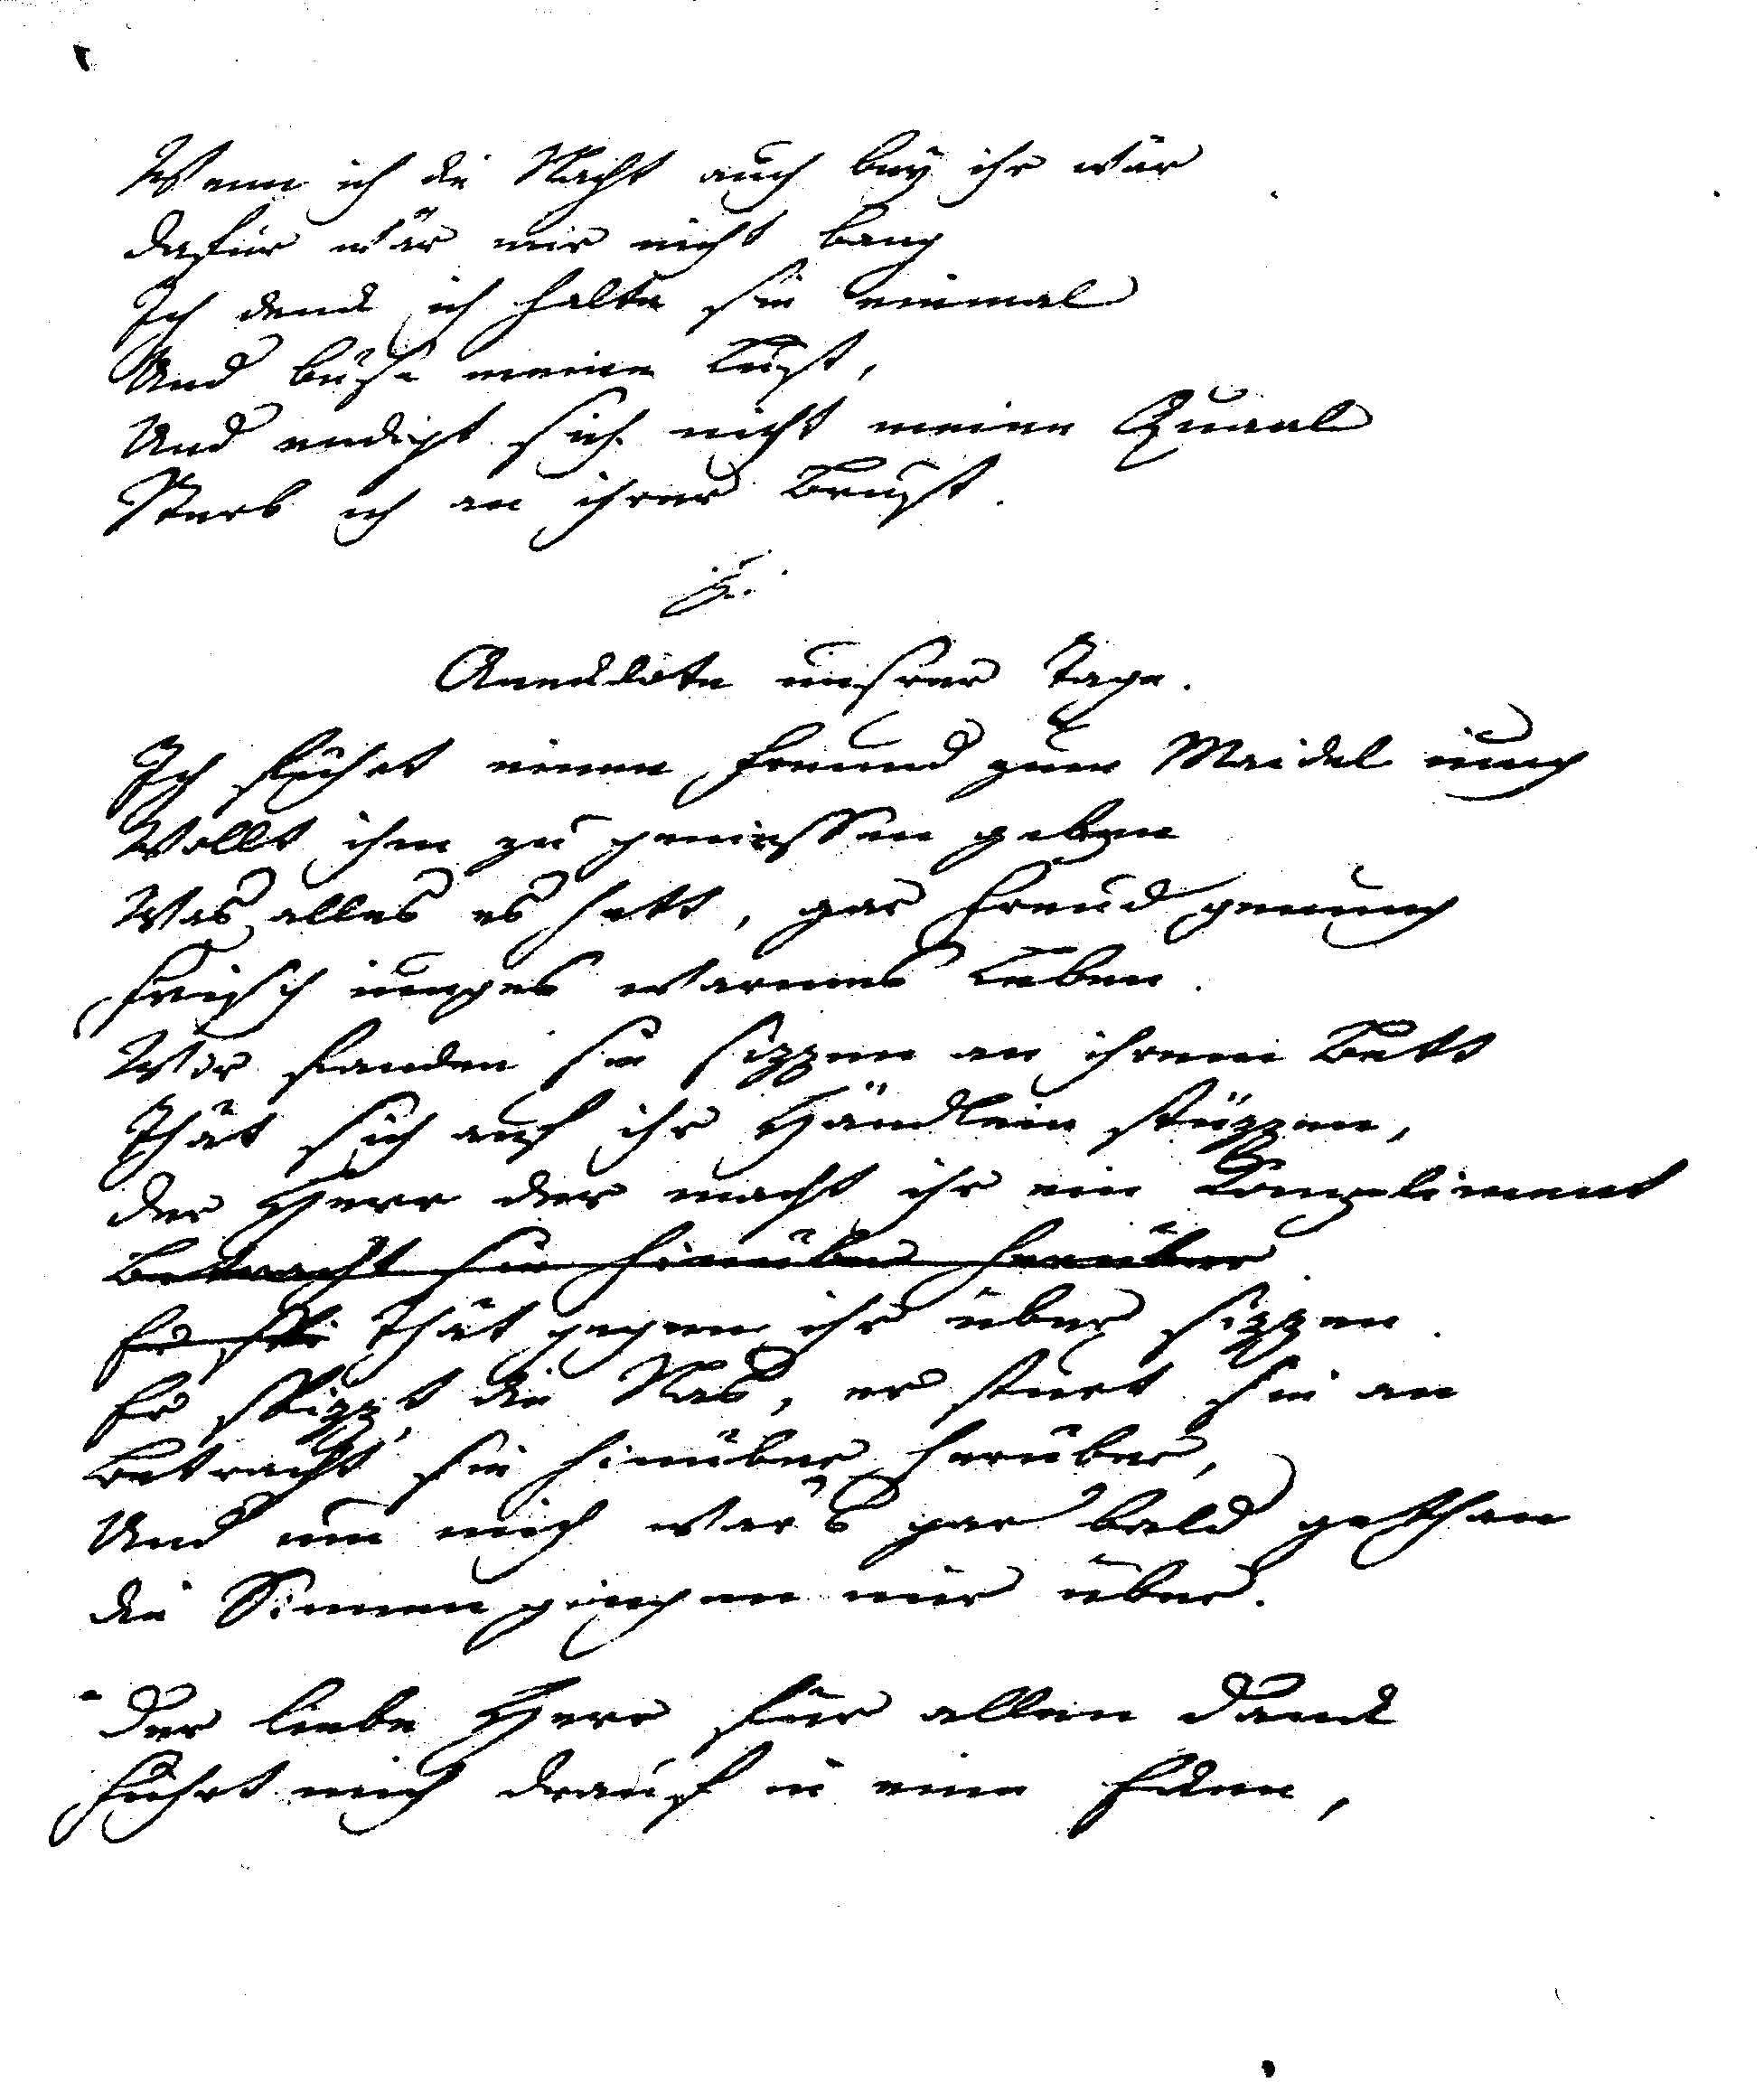 Wenn ich die Nacht auch bey ihr wär
dafür wär mir nicht bang
Ich denck ich halte sie einmal
Und büse meine Lust,
Und endigt sich nicht meine Quaal
Sterb ich an ihrer Brust.
Aneckdote unsrer Tage.
Ich führt einen Freund zum Maidel iung
Wollt ihm zu geniessen geben
Was alles es hett, gar Freud genung
Frisch iunges warmes Leben.
Wir fanden sie sizzen an ihrem Bett
Thät sich auf ihr Händlein stüzzen,
der Herr der macht ihr ein Compliment
Betracht sie hinüber herüber
Er Thät gegen ihr über sizzen.
Er spizzt die Nas, er sturt sie an
Betracht sie hinüber herüber,
Und um mich wars gar bald gethan
die Sinnen gingen mir über.
der liebe Herr für allen danck
Führt mich drauf in eine Ecken,